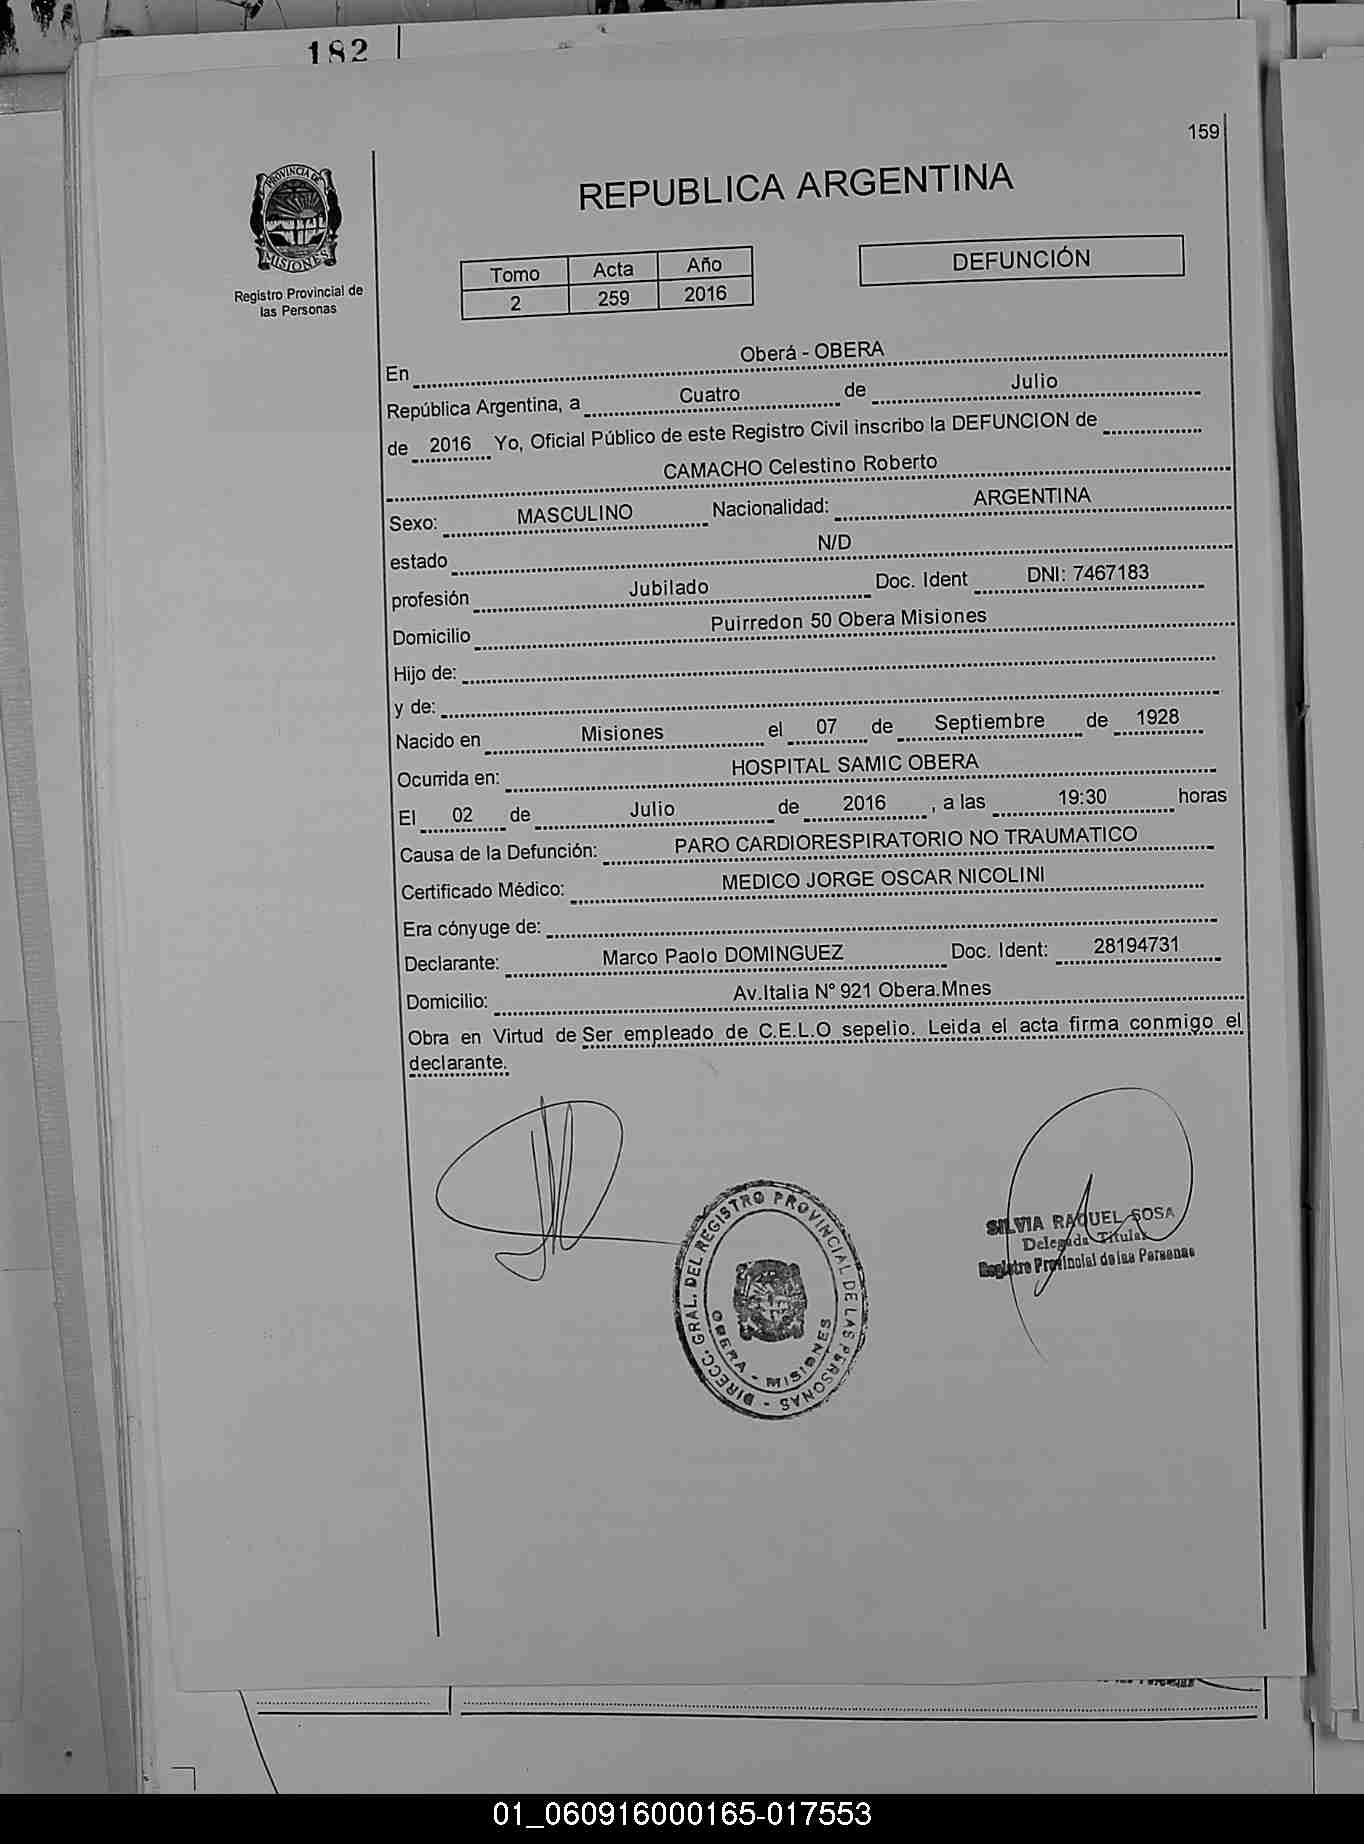 182
159
PROVINCIA DE
MISIONES
Registro Provincial de
las Personas
REPUBLICA ARGENTINA
Tomo Acta Año
2 259 2016
DEFUNCIÓN
En Oberá - OBERA
República Argentina, a Cuatro de Julio
de 2016 Yo, Oficial Público de este Registro Civil inscribo la DEFUNCION de
CAMACHO Celestino Roberto
Sexo: MASCULINO Nacionalidad: ARGENTINA
estado N/D
profesión Jubilado Doc. Ident DNI: 7467183
Domicilio Puirredon 50 Obera Misiones
Hijo de:
y de:
Nacido en Misiones el 07 de Septiembre de 1928
Ocurrida en: HOSPITAL SAMIC OBERA
El 02 de Julio de 2016 , a las 19:30 horas
Causa de la Defunción: PARO CARDIORESPIRATORIO NO TRAUMATICO
Certificado Médico: MEDICO JORGE OSCAR NICOLINI
Era cónyuge de:
Declarante: Marco Paolo DOMINGUEZ Doc. Ident: 28194731
Domicilio: Av.Italia N° 921 Obera.Mnes
Obra en Virtud de Ser empleado de C.E.L.O sepelio. Leida el acta firma conmigo el
declarante.
DIRECC. GRAL. DEL REGISTRO PROVINCIAL DE LAS PERSONAS -
OBERA - MISIONES
SILVIA RAQUEL SOSA
Delegada Titular
Registro Provincial de las Personas
01_060916000165-017553